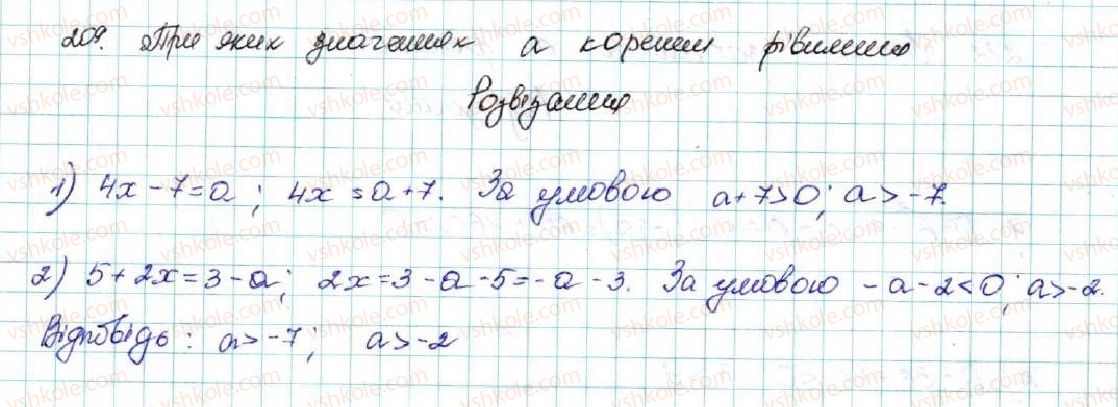 209. При яких значеннях а коренем рівняння
Розвізання
1) 4x - 7 = a; 4x = a + 7. За умовою a + 7 > 0; a > -7.
2) 5 + 2x = 3 - a; 2x = 3 - a - 5 = -a - 3. За умовою -a - 2 < 0; a > -2.
Відповідь: a > -7; a > -2